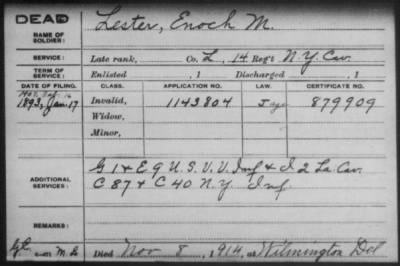 DEAD
Lester, Enoch M.
NAME OF SOLDIER:
SERVICE: Late rank, Co. L, 14 Reg't N.Y. Cav.
TERM OF SERVICE: Enlisted , 1 Discharged , 1
DATE OF FILING. CLASS. APPLICATION NO. LAW. CERTIFICATE NO.
1893, Jan. 17 Invalid, 1143804 879909
Widow,
Minor,
ADDITIONAL SERVICES: G 1 & E 9 U.S.V.V. Inf & I 2 La. Cav.
C 87 & C 40 N.Y. Inf
REMARKS:
Died Nov 8, 1914, at Wilmington Del